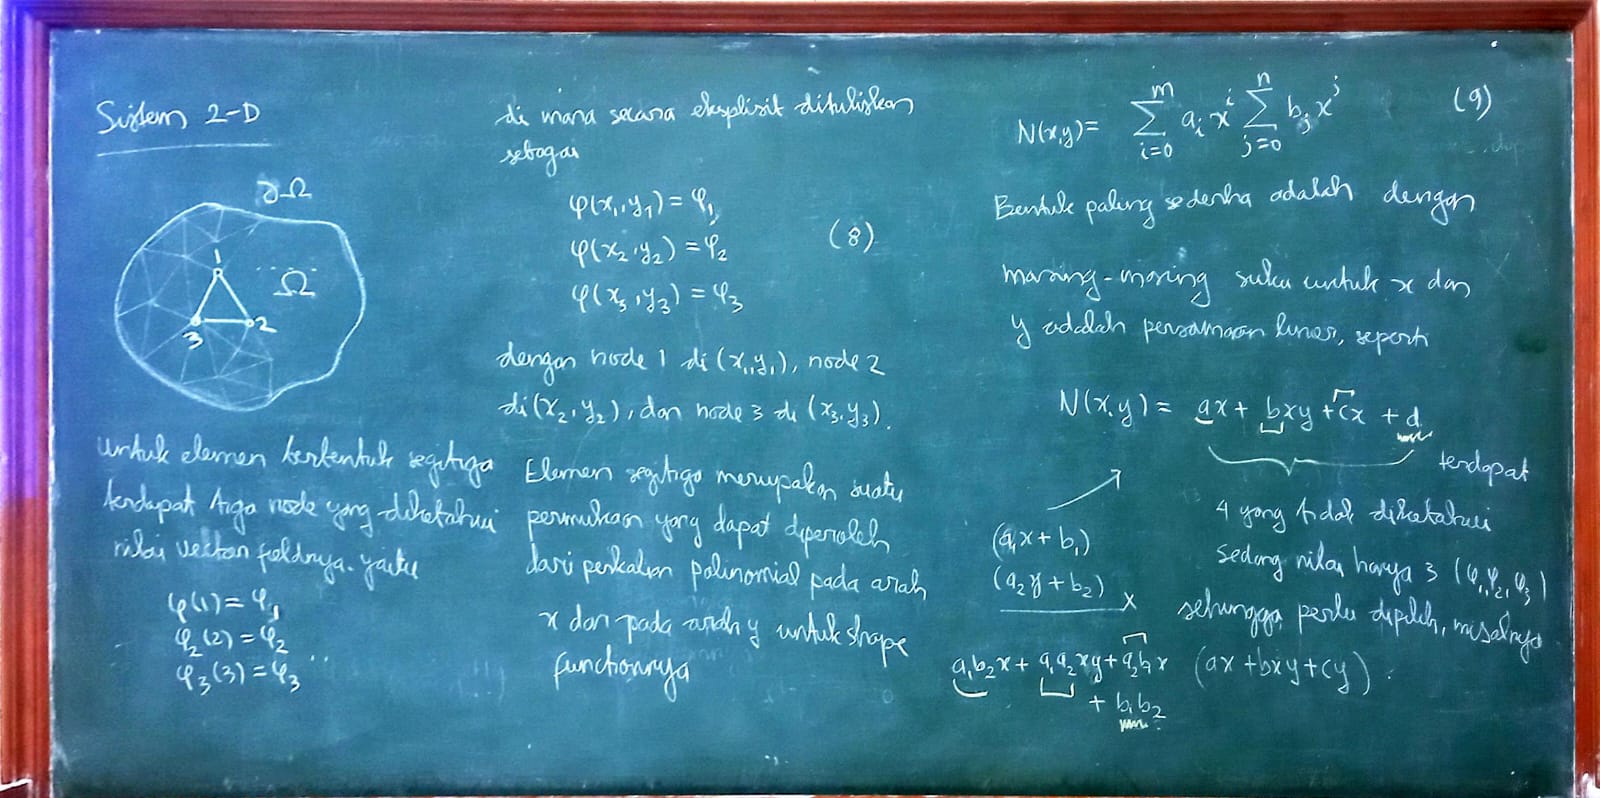 Sistem 2-D
∂Ω
Ω
1
2
3
untuk elemen berbentuk segitiga
terdapat tiga node yang diketahui
nilai vector fieldnya. yaitu
φ(1) = φ₁
φ₂(2) = φ₂
φ₃(3) = φ₃
di mana secara eksplisit dituliskan
sebagai
φ(x₁, y₁) = φ₁
φ(x₂, y₂) = φ₂ (8)
φ(x₃, y₃) = φ₃
dengan node 1 di (x₁, y₁), node 2
di (x₂, y₂), dan node 3 di (x₃, y₃).
Elemen segitiga merupakan suatu
permukaan yang dapat diperoleh
dari perkalian polinomial pada arah
x dan pada arah y untuk shape
functionnya
N(x,y) = ∑_{i=0}^{m} aᵢ xⁱ ∑_{j=0}^{n} bⱼ xʲ (9)
Bentuk paling sederha adalah dengan
masing-masing suku untuk x dan
y adalah persamaan linier, seperti
N(x,y) = ax + bxy + cx + d
terdapat
4 yang tidak diketahui
sedang nilai hanya 3 (φ₁, φ₂, φ₃)
sehingga perlu dipilih, misalnya
(ax + bxy + cy)
(a₁x + b₁)
(a₂y + b₂) ×
a₁b₂x + a₁a₂xy + a₂b₁x
+ b₁b₂